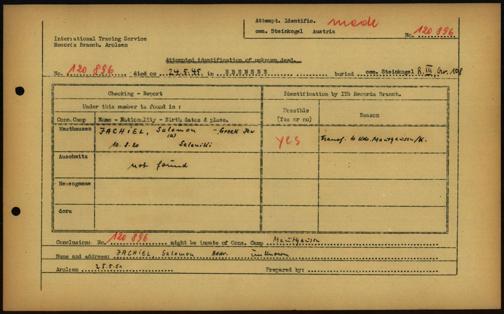 Attempt. Identific. made
International Tracing Service
Records Branch, Arolsen
cem. Steinkogel Austria No. 120 896
Attempted identification of unknown dead.
No. 120 896 died on 24.5.45 in EBENSEE buried cem. Steinkogel
Checking - Report
Identification by ITS Records Branch.
Under this number is found in :
Possible
(Yes or no)
Reason
Conc.Camp Name - Nationality - Birth dates & place.
Mauthausen ZACHIEL, Salomon - Greek Jew
10.8.20 Saloniki
YES
Transf. to Kdo. Mauthausen/
Auschwitz
not found
Neuengamme
dora
Conclusion: No. 120 896 might be inmate of Conc. Camp Mauthausen
Name and address: ZACHIEL Salomon unknown
Arolsen Prepared by: